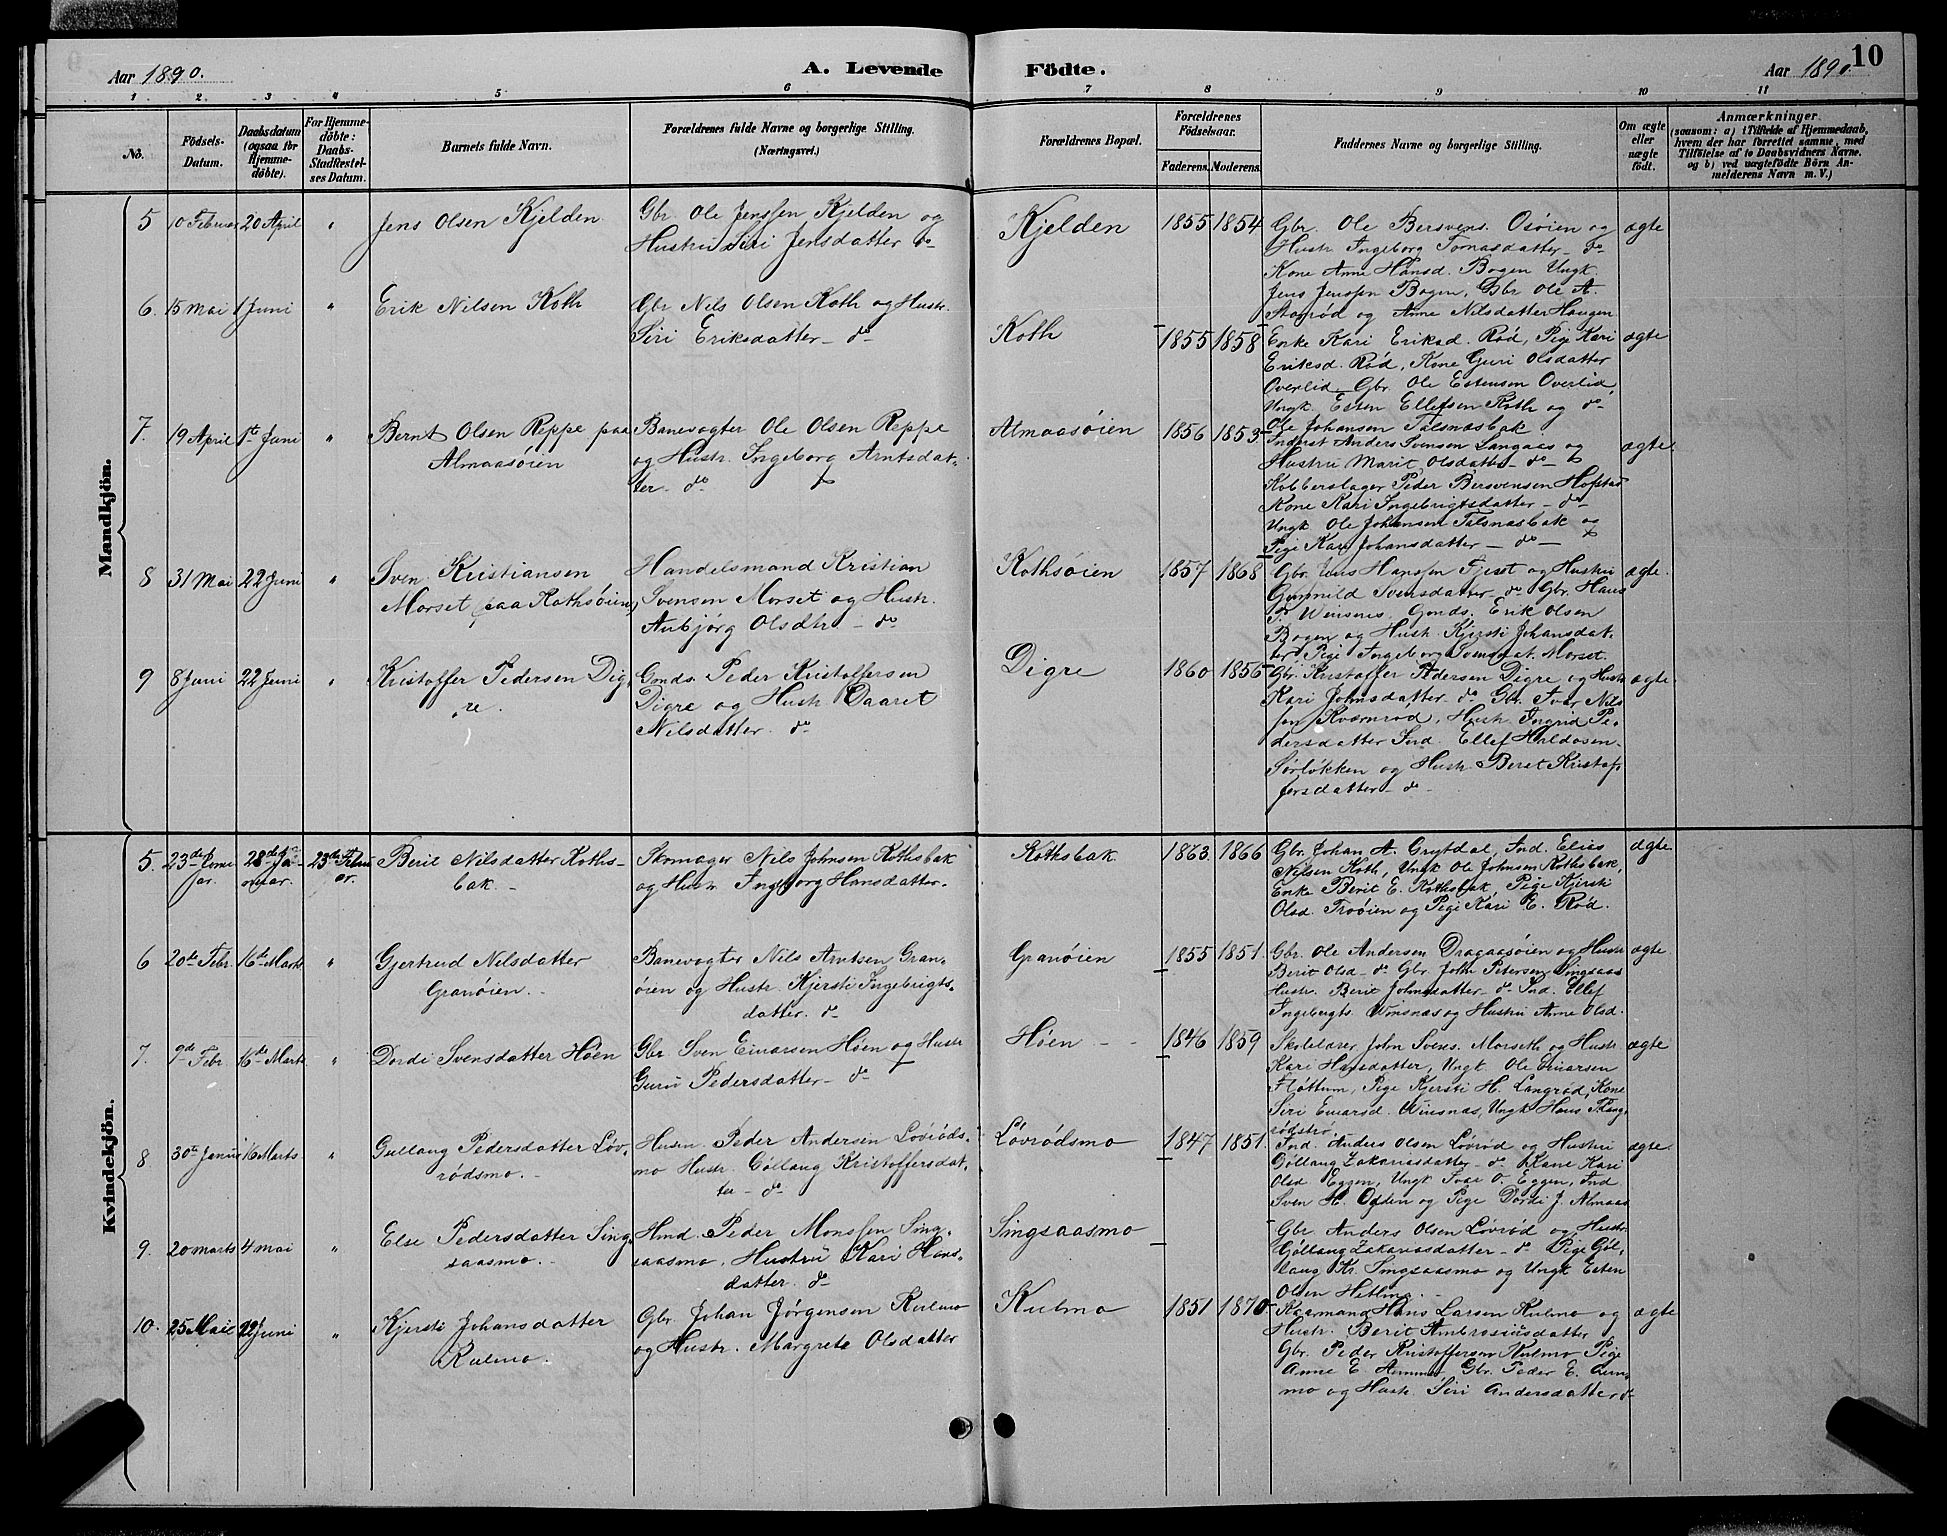 Aar 1890.
A. Levende Födte.
Aar 1890.
10
1 2 3 4 5 6 7 8 9 10 11
No.
Födsels-Datum.
Daabsdatum (ogsaa for Hjemmedöbte).
For Hjemmedöbte: Daabs-Stadfæstelses Datum.
Barnets fulde Navn.
Forældrenes fulde Navne og borgerlige Stilling.
(Næringsvei.)
Forældrenes Bopæl.
Forældrenes Födselsaar.
Faderens. Moderens.
Faddernes Navne og borgerlige Stilling.
Om ægte eller uægte födt.
Anmærkninger.
(saasom: a) i Tilfælde af Hjemmedaab,
hvem der har forrettet samme, med
Tilföielse af to Daabsvidners Navne.
og b) ved uægtefödte Börn An-
melderens Navn m. V.)
Mandkjön.
5 10 Februar 20 April " Jens Olsen Kjelden
Gbr. Ole Jenssen Kjelden og
Hustru Siri Jensdatter do
Kjelden 1855 1854
Gbr. Ole Bersvens. Osöien og
Hustr Ingeborg Tomasdatter do
Kone Anne Hansd. Bogen Ungk.
Jens Jenssen Bogen, Gbr Ole A.
og Anne Nilsdatter Haugen
ægte
6. 15 Mai 1 Juni " Erik Nilsen Koth
Gbr Nils Olsen Koth og Hustr.
Siri Eriksdatter do
Koth 1855 1858
Enke Kari Eriksd. Röd, Pige Kari
Eriksd. Röd, Kone Guri Olsdatter
Overlid, Gbr Ole Estensen Overlid,
Ungk. Esten Ellefsen Koth og do
Ole Johansen Talsnæsbak
ægte
7. 19 April 1st Juni " Bernt Olsen Reppe paa
Almaasöien
Banevogter Ole Olsen Reppe
og Hustr. Ingeborg Arntsdat-
ter do
Almaasöien 1856 1853
Inderst Anders Svensen Langaas og
Hustru Marit Olsdatter do
Kobberslager Peder Bersvensen Hofstad
Kone Kari Ingebrigtsdatter do
Ungk Ole Johansen Talsnæsbak og
Pige Kari Johansdatter do
ægte.
8 31 Mai 22 Juni " Sven Kristiansen
Morset paa Kothsöien
Handelsmand Kristian
Svensen Morset og Hustr.
Anbjörg Olsdtr do
Kothsöien 1857 1868
Gbr. Jens Hanssen Fjeset og Hustru
Gunnild Svensdatter do Gbr. Hans
P. Winsnes, Gmds. Erik Olsen
Bogen og Hustr. Kjersti Johansdat-
ter Pige Ingeborg Svensdat. Morset.
ægte.
9 8 Juni 22 Juni " Kristoffer Pedersen Dig-
re.
Gmds. Peder Kristoffersen
Digre og Hustr Daaret
Nilsdatter. do
Digre 1860 1856
Gbr. Kristoffer Pedersen Digre og Hustr
Kari Johnsdatter do Gbr. Ivar Nils
sen Kværnröd, Hustr Ingrid Pe-
dersdatter Ind. Ellef Haldosen
Sörlökken og Hustr Beret Kristof
fersdatter do
ægte
Kvindekjön.
5. 23de Janu
ar. 28de Ja-
nuar. 23de Febru
ar. Berit Nilsdatter Koths-
bak.
Skomager Nils Johnsen Kothsbak
og Hustr Ingeborg Hansdatter.
Kothsbak 1863. 1866
Gbr. Johan A. Grytdal, Ind. Elias
Nilsen Koth, Ungk Ole Johnsen Kothsbak,
Enke Berit E. Kothsbak, Pige Kjersti
Olsd. Troöien og Pige Kari E. Röd.
ægte
6 20de Febr. 16de Marts " Gjertrud Nilsdatter
Granöien.
Banevogter Nils Arntsen Gran-
öien og Hustr. Kjersti Ingebrigts-
datter. do
Granöien 1855 1851.
Gbr. Ole Andersen Dragaasöien og Hustr
Berit Olsd do Gbr. John Petersen Singsaas
Hustr. Berit Johnsdatter do Ind. Ellef
Ingebrgts. Winsnæs og Hustru Anne Olsd.
ægte
7. 9de Febr. 16de Marts " Dordi Svensdatter Höen
Gbr. Sven Einarsen Höen og Hustr
Guru Pedersdatter do
Höen 1846 1859
Skolelærer John Svens. Morseth og Hustr
Kari Hansdatter, Ungk. Ole Einarsen
Flöttum, Pige Kjersti H. Langröd, Kone
Siri Einarsd. Winsnæs, Ungk Hans
rödströ
ægte
8 30te Januar 16 Marts " Gullaug Pedersdatter Löv-
rödsmo.
Husm. Peder Andersen Lövröds-
mo Hustr. Göllaug Kristoffersdat-
ter do
Lövrödsmo 1847 1851.
Ind. Anders Olsen Lövröd og Hustru
Göllaug Zakariasdatter do Kone Kari
Olsd Eggen, Ungk Ivar O. Eggen, Ind
Sven H. Odden og Pige Dordi J. Almaas
ægte.
9. 20 marts 4 mai " Else Pedersdatter Sing-
saasmo.
Hmd. Peder Monssen Sing-
saasmo, Hustru Kari Hans-
datter. do
Singsaasmo
Gbr Anders Olsen Lövröd og Hustr.
Göllaug Zakariasdatter do Pige Göl-
laug Kr. Singsaasmo og Ungk Esten
Olsen
10. 25 Mai 22 Juni " Kjersti Johansdatter
Kulmo.
Gbr. Johan Jörgensen Kulmo
og Hustr. Margrete Olsdatter
Kulmo 1851 1870
Kaarmand Hans Larsen Kulmo og
Hustr. Berit Ambrosiusdatter
Gbr. Peder Kristoffersen Kulmo Pige
Anne E. Gbr. Peder E.
mo og Hustr. Siri Andersdatter do
ægte